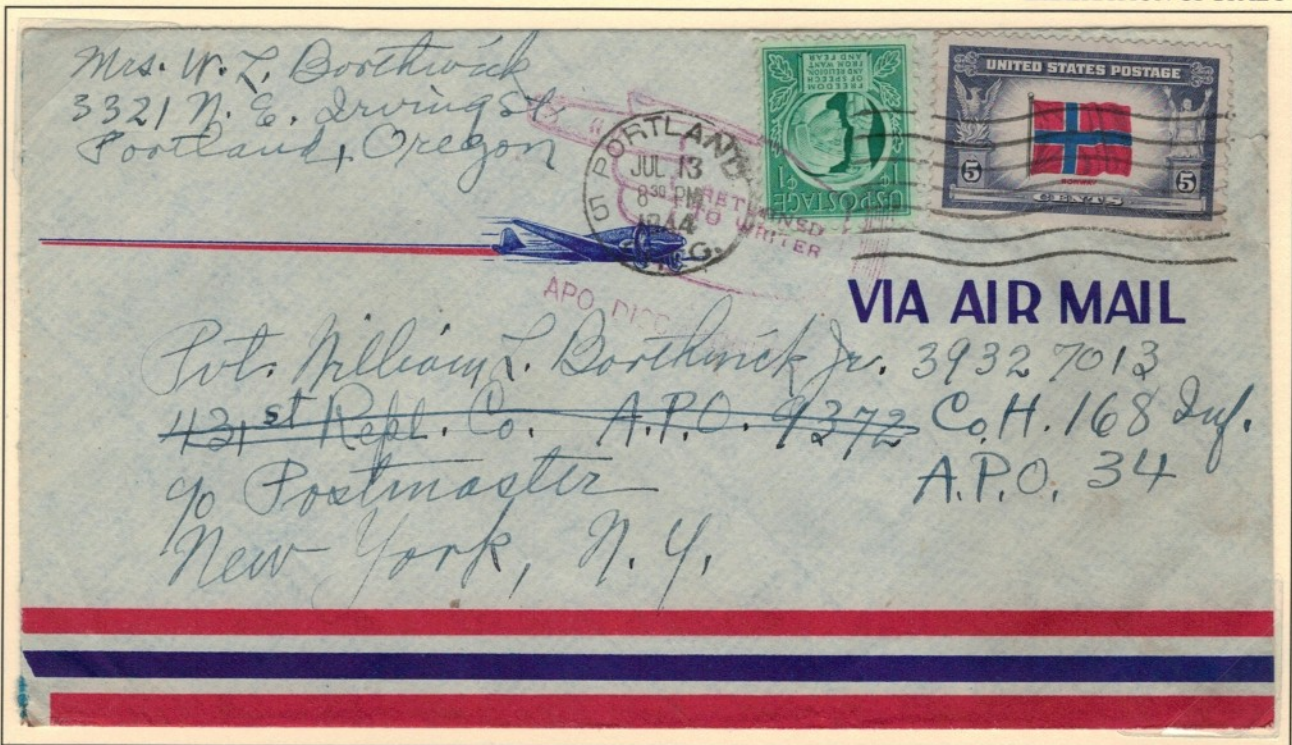 Mrs. W. L. Borthwick
3321 N. E. Irving St.
Portland, Oregon
PORTLAND
5
JUL 13
8 30 PM
1944
OREG.
RETURNED
TO WRITER
APO
FREEDOM
OF SPEECH
AND RELIGION,
FROM WANT
AND FEAR
1¢ 1¢
US POSTAGE
UNITED STATES POSTAGE
5 5
NORWAY
CENTS
VIA AIR MAIL
Pvt. William L. Borthwick Jr. 39327013
431st Repl. Co. A.P.O. 9372 Co. H. 168 Inf.
A.P.O. 34
c/o Postmaster
New York, N. Y.